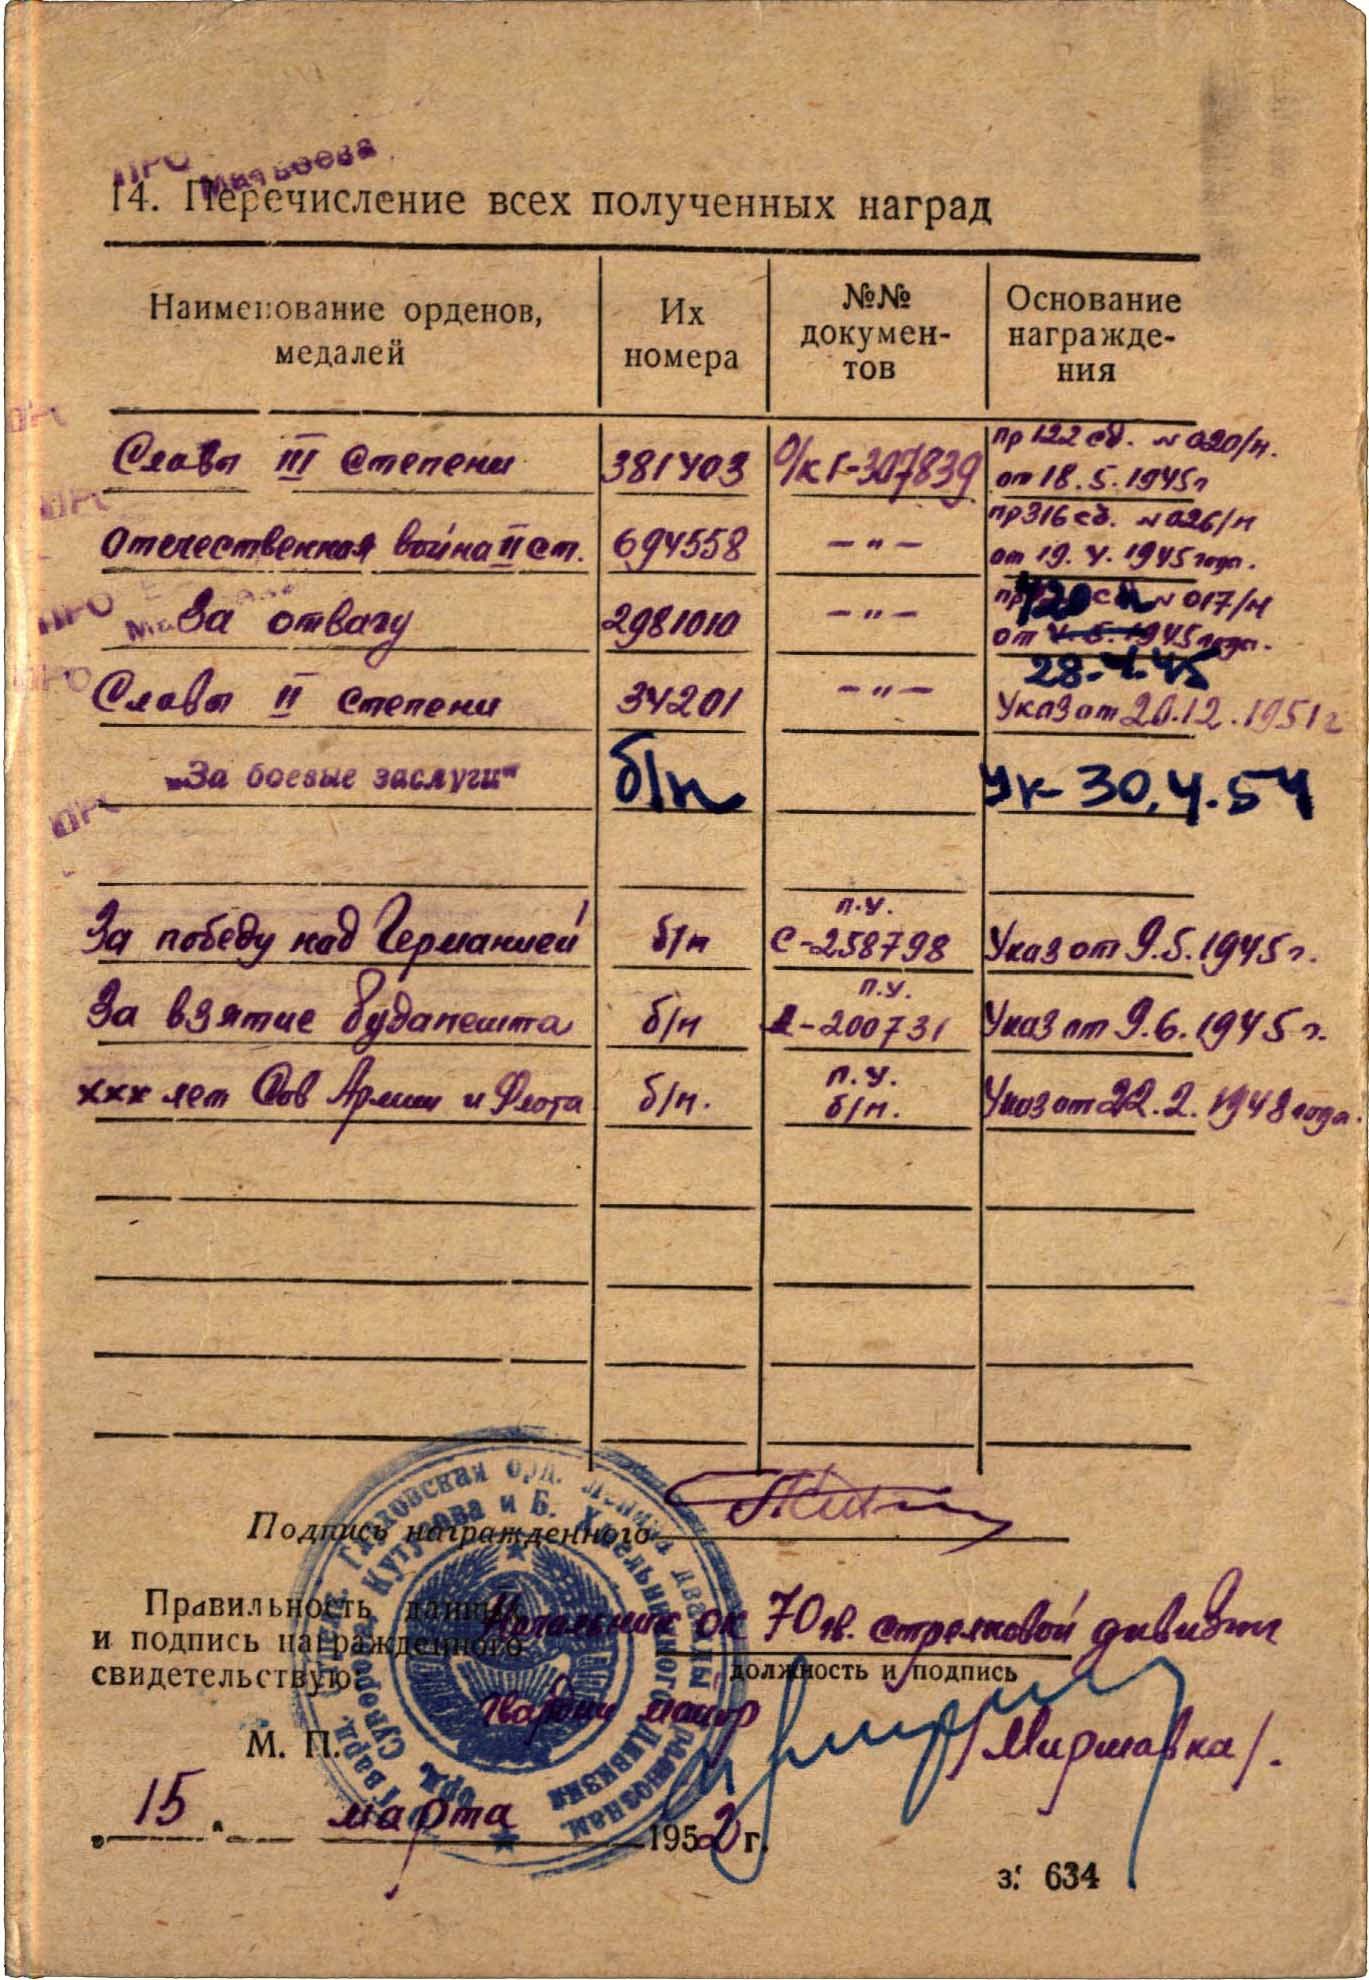 ПРО Матвеева
14. Перечисление всех полученных наград
Наименование орденов, медалей
Их номера
№№ докумен-тов
Основание награжде-ния
Славы III степени 381403 О/к Г-307839 пр 122 сд. №020/н. от 18.5.1945г
Отечественная война II ст. 694558 —"— пр 316 сд. №026/н от 19.4.1945 года.
За отвагу 2981010 —"— №017/н
от 4.5.1945 года.
28.4.45
Славы II степени 34201 —"— Указ от 20.12.1951г
„За боевые заслуги" б/н Ук-30.4.54
За победу над Германией б/н п.у. С-258798 Указ от 9.5.1945 г.
За взятие Будапешта б/н п.у. А-200731 Указ от 9.6.1945 г.
ххх лет Сов Армии и Флота б/н. п.у. б/н. Указ от 22.2.1948 года.
Подпись награжденного
Правильность данных
и подпись награжденного
свидетельствую
Начальник ок 70 гв. стрелковой дивизии
должность и подпись
гвардии майор
/Миршавка/.
М. П.
„15" марта 1952 г.
з. 634